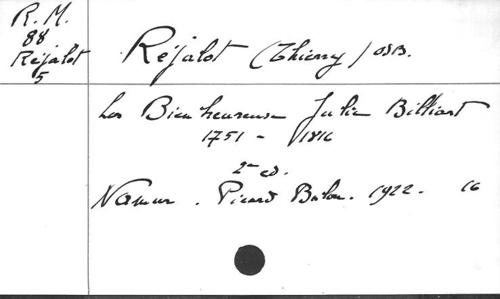 R. M.
88
Réjalot
5
Réjalot (Thierry) OSB.
La Bienheureuse Julie Billiart
1751 - 1816
2e ed.
Namur. Picard Balon. 1922. 16